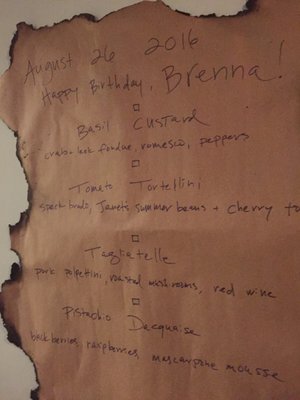 August 26 2016
Happy Birthday, Brenna!
Basil Custard
crab + leek fondue, romesco, peppers
Tomato Tortellini
speck brodo, Janet's summer beans + cherry
Tagliatelle
pork polpettini, roasted mushrooms, red wine
Pistachio Dacquoise
blackberries, raspberries, mascarpone mousse